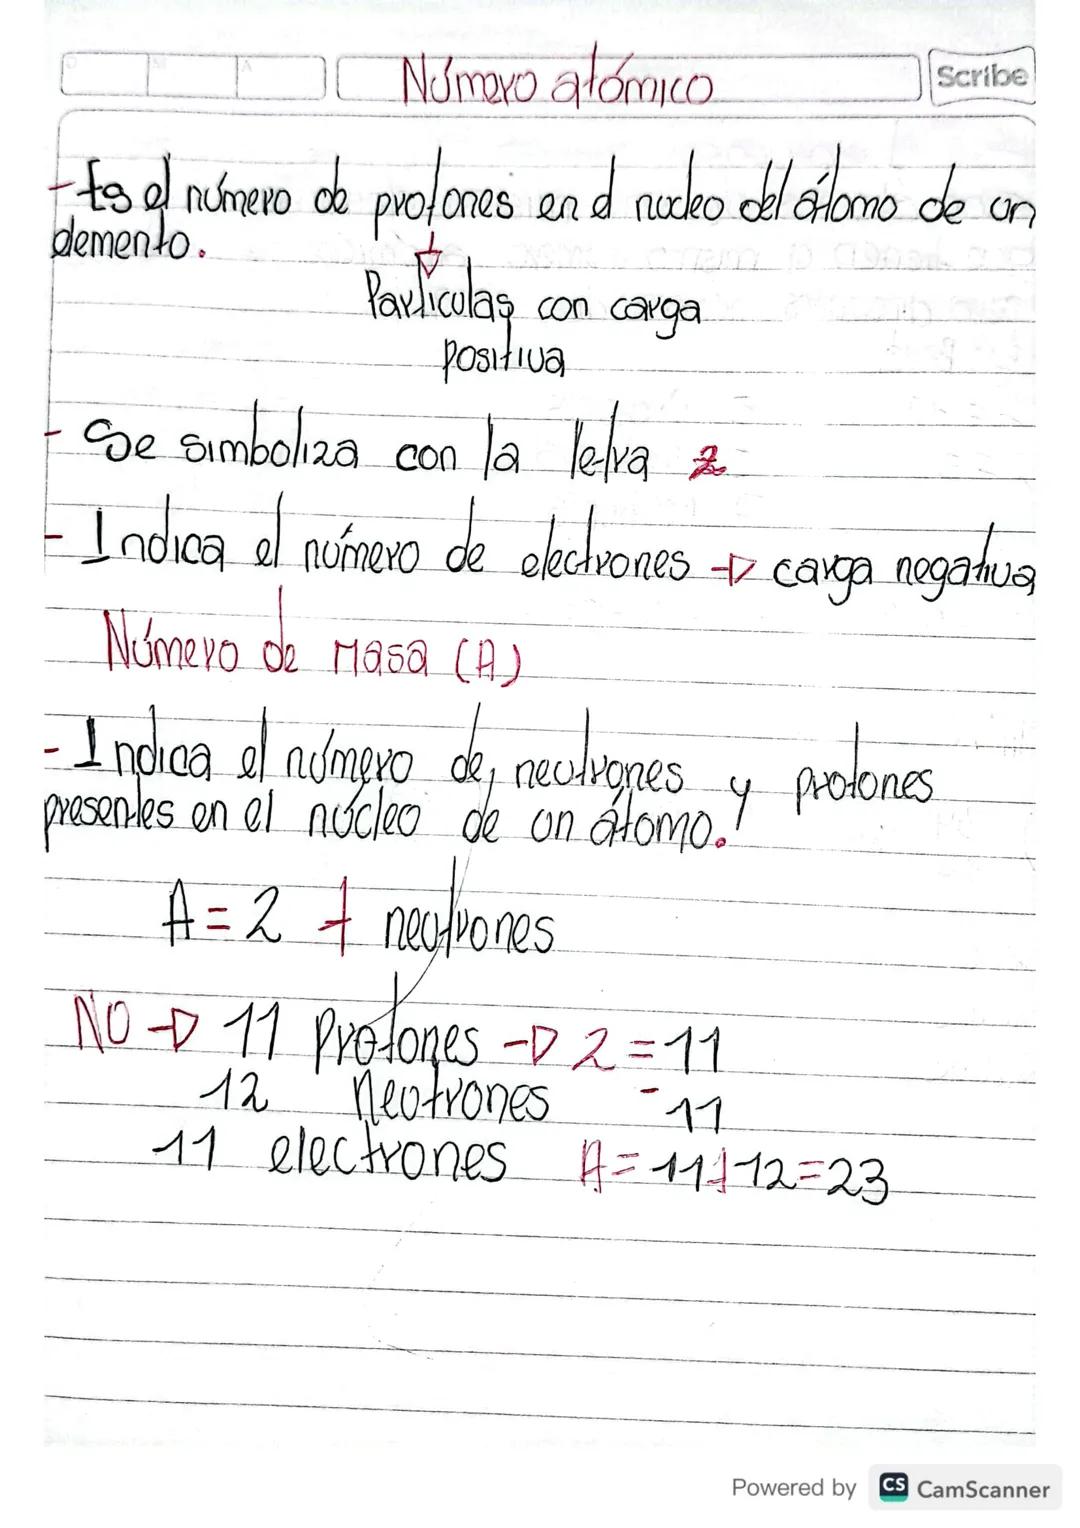 D M A
Número atómico
Scribe
- Es el número de protones en el nucleo del átomo de un
elemento.
Particulas con carga
positiva
- Se simboliza con la letra z
- Indica el número de electrones → carga negativa
Número de Masa (A)
- Indica el número de neutrones y protones
presentes en el núcleo de un átomo.
A = Z + neutrones
NO → 11 Protones → Z = 11
12 Neutrones - 11
11 electrones A = 11 + 12 = 23
Powered by CS CamScanner